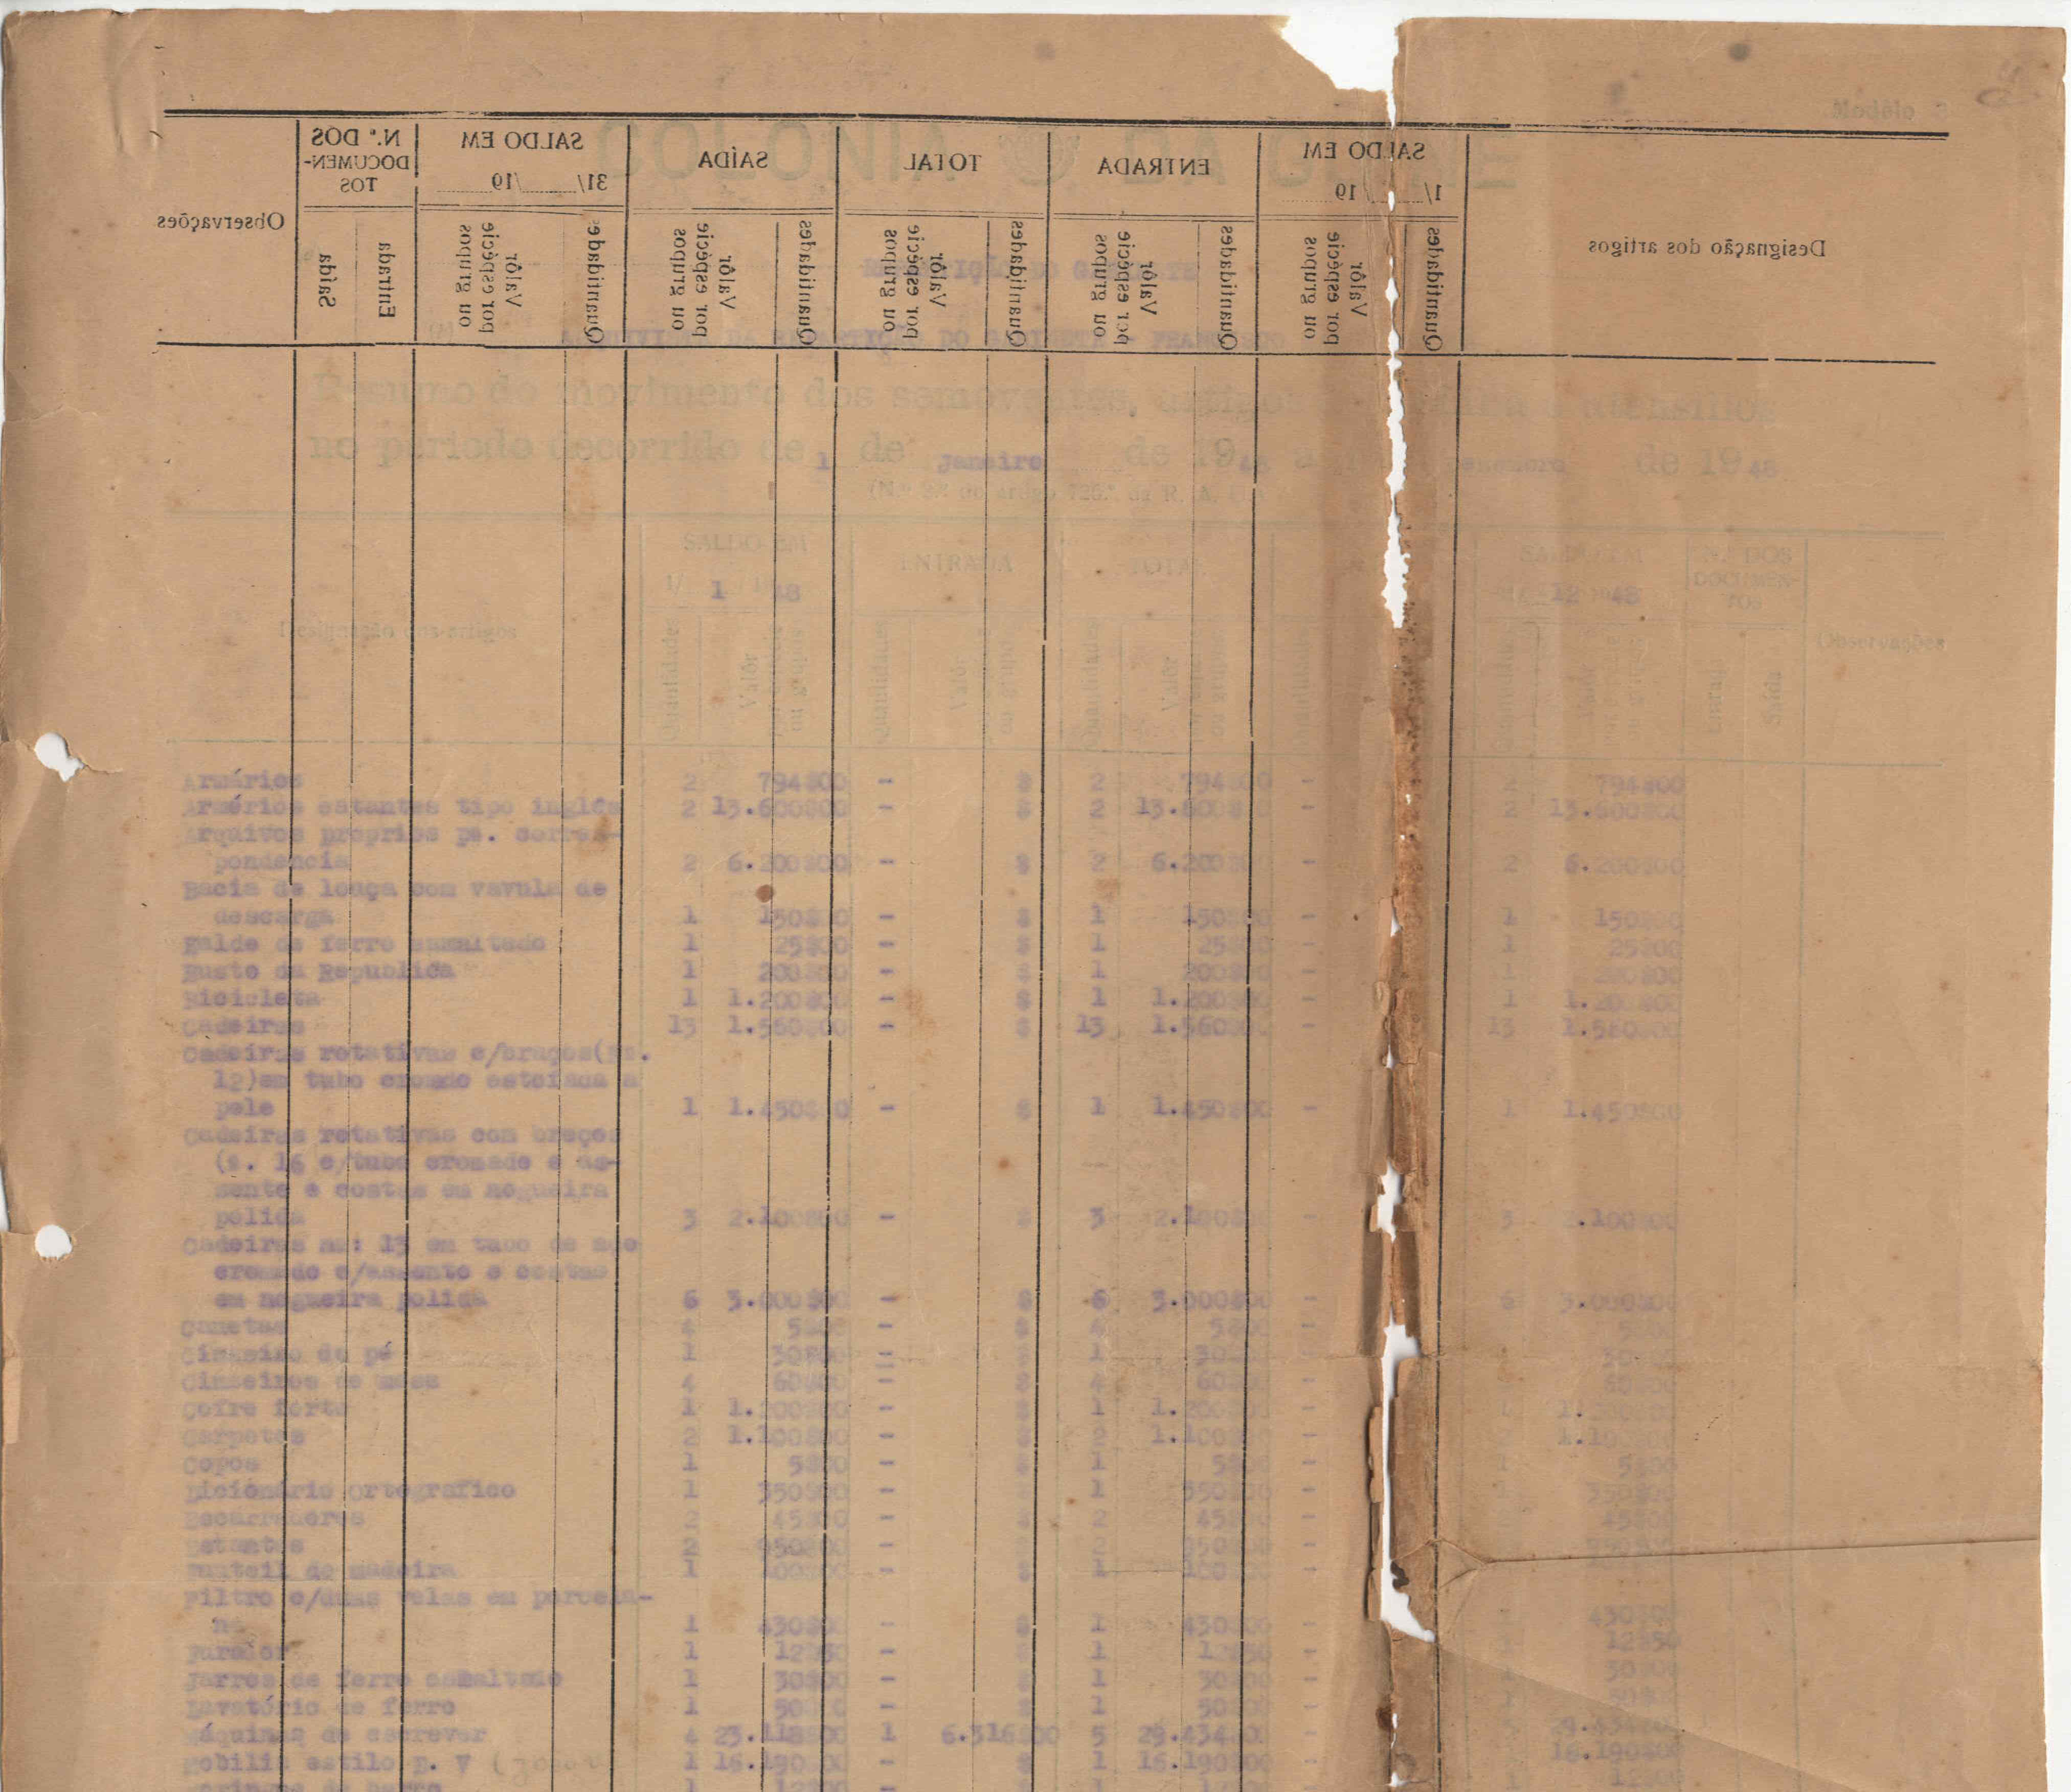 Modêlo 3
COLONIA DA GUINE
N.º DOS DOCUMEN-TOS
SALDO EM 31/ /19
SAÍDA
TOTAL
ENTRADA
SALDO EM 1/ /19
Designação dos artigos
Observações
Saída
Entrada
Valôr por espécie ou grupos
Quantidades
Valôr por espécie ou grupos
Quantidades
Valôr por espécie ou grupos
Quantidades
Valôr por espécie ou grupos
Quantidades
Valôr por espécie ou grupos
Quantidades
REPARTIÇÃO DO GABINETE
DO GABINETE - FRANCISCO
Resumo do movimento dos semoventes, artigos utensilios
no periodo decorrido de 1 de Janeiro de 1948 a de 1948
SALDO EM 1/ 1 48 ENTRADA TOTAL SALDO EM 12 48 N.º DOS DOCUMEN-TOS
Designação dos artigos Observações
Quantidades Valôr Quantidades Valôr Quantidades Valôr Entrada Saída
Armários 2 794$00 - $ 2 794$00 - 2 794$00
Armários estantes tipo inglês 2 13.600$00 - $ 2 13.600$00 - 2 13.600$00
Arquivos proprios pa. corres-
pondencia 2 6.200$00 - $ 2 6.200$00 - 2 6.200$00
Bacia de louça com vavula de
descarga 1 150$00 - $ 1 150$00 - 1 150$00
Balde de ferro esmaltado 1 25$00 - $ 1 25$00 - 1 25$00
Busto da Republica 1 200$00 - $ 1 200$00 - 1 200$00
Bicicleta 1 1.200$00 - $ 1 1.200$00 - 1 1.200$00
Cadeiras 13 1.560$00 - $ 13 1.560$00 - 13 1.560$00
Cadeiras rotativas c/braços(
12)em tubo cromado estofada a
pele 1 1.450$00 - $ 1 1.450$00 - 1 1.450$00
Cadeiras rotativas com braços
16 c/tubo cromado e as-
sento e costas em nogueira
polida 3 2.100$00 - $ 3 2.100$00 - 3 2.100$00
Cadeiras ns: 13 em tubo de aço
cromado c/assento e costas
em nogueira polida 6 3.000$00 - $ 6 3.000$00 - 6 3.000$00
Canetas 4 5$00 - $ 4 5$00 - 5$00
Cinzeiro de pé 1 30$00 - $ 1 30$00 - 30$00
Cinzeiros de mesa 4 60$00 - $ 4 60$00 - 60$00
Cofre forte 1 1.200$00 - $ 1 1.200$00 - 1 1.200$00
Carpetes 2 1.100$00 - $ 2 1.100$00 - 2 1.100$00
Copos 1 5$00 - $ 1 5$00 - 1 5$00
Dicionário ortografico 1 350$00 - 1 350$00 - 1 350$00
Escarradores 2 45$00 - $ 2 45$00 - 45$00
Estantes 2 950$00 - 2 950$00 - 950$00
Fauteil de madeira 1 100$00 - $ 1 100$00 -
Filtro c/duas velas em porcela-
na 1 430$00 - $ 1 430$00 - 430$00
Furador 1 12$50 - 1 12$50 - 1 12$50
Jarros de ferro esmaltado 1 30$00 - $ 1 30$00 - 1 30$00
Lavatório de ferro 1 50$00 - $ 1 50$00 - 1 50$00
Máquinas de escrever 4 23.118$00 1 6.316$00 5 29.434$00 - 5 29.434$00
Mobilia estilo p. V 1 16.190$00 - $ 1 16.190$00 - 16.190$00
de barro 1 12$00 - 1 12$00 - 12$00